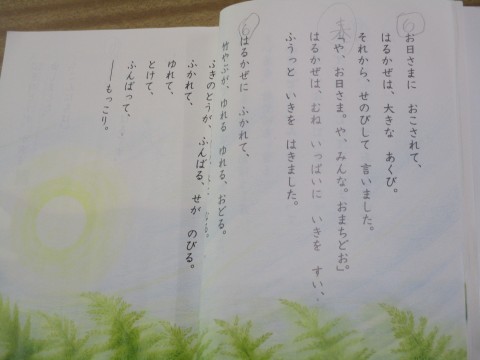 お日さまに おこされて、
はるかぜは、大きな あくび。
それから、せのびして 言いました。
「や、お日さま。や、みんな。おまちどお」
はるかぜは、むね いっぱいに いきを すい、
ふうっと いきを はきました。
はるかぜに ふかれて、
竹やぶが、ゆれる ゆれる、おどる。
ふきのとうが、ふんばる、せが のびる。
ふかれて、
ゆれて、
とけて、
ふんばって、
――もっこり。